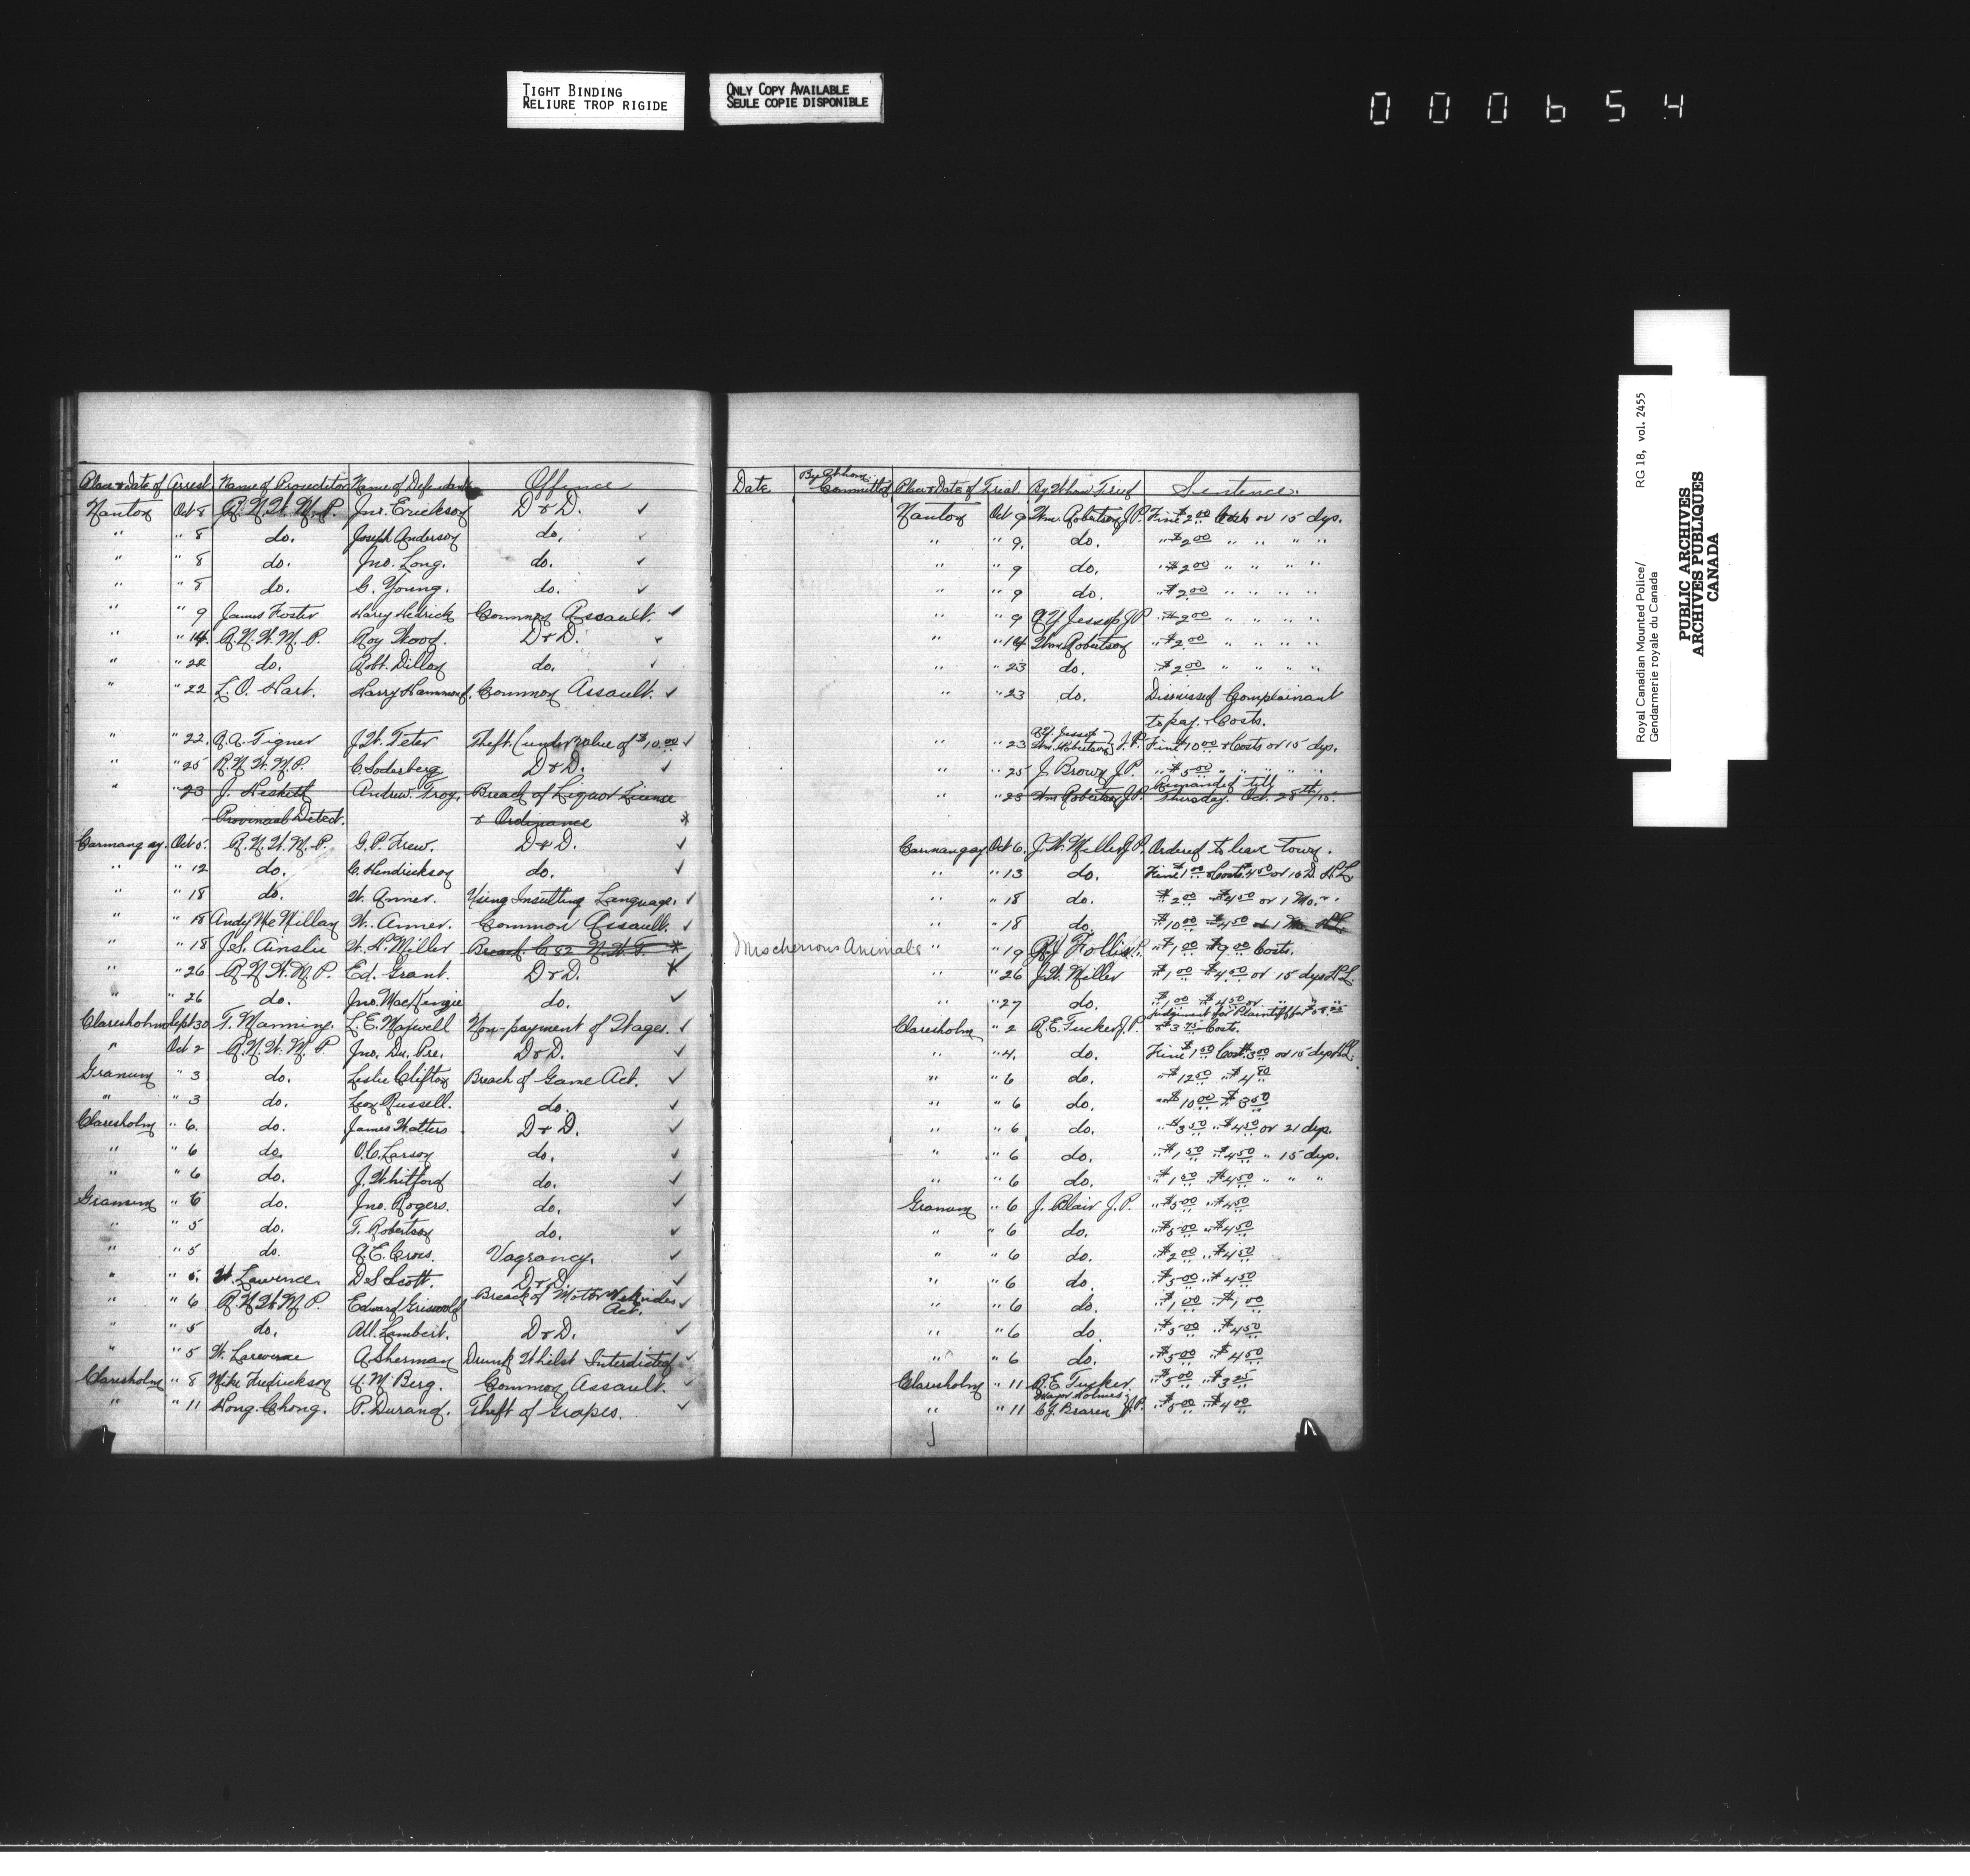 TIGHT BINDING
RELIURE TROP RIGIDE
ONLY COPY AVAILABLE
SEULE COPIE DISPONIBLE
000654
Place & Date of Arrest Name of Prosecutor Name of Defendant Offence Date By Whom Committed Place & Date of Trial By Whom Tried Sentence.
Nanton Oct 8 R.N.W.M.P. Jno. Erickson D & D. ✓ Nanton Oct 9 Wm. Robertson J.P. Fine $2.00 Costs or 15 dys.
" " 8 do. Joseph Anderson do. ✓ " " 9. do. " $2.00 " " " "
" " 8 do. Jno. Long. do. ✓ " " 9 do. " $2.00 " " " "
" " 8 do. C. Young. do. ✓ " " 9 do. " $2.00 " " " "
" " 9 James Foster Harry Hedrick Common Assault. ✓ " " 9 Jessop J.P. " $2.00 " " " "
" " 14. R.N.W.M.P. Roy Wood. D & D. ✓ " " 14 Wm Robertson " $2.00 " " " "
" " 22 do. Robt. Dillon do. ✓ " " 23 do. " $2.00 " " " "
" " 22 L.O. Hart. Harry Hammond. Common Assault. ✓ " " 23 do. Dismissed Complainant
to pay Costs.
" " 22. Tigner J.W. Teter Theft (under value of $10.00 ✓ " " 23 Jessop Wm. Robertson } J.P. Fine $10.00 & Costs or 15 dys.
" " 25 R.N.W.M.P. C. Soderberg D & D. ✓ " " 25 J. Brown J.P. " $5.00 " " " "
" " 23 J. Heskett Andrew Troy. Breach of Liquor License " " 23 Wm Robertson J.P. Remanded till Thursday. Oct. 28th/15.
Provincial Detect. & Ordinance *
Carmangay. Oct 5. R.N.W.M.P. G.P. Frew. D & D. ✓ Carmangay Oct 6. J.W. Miller J.P. Ordered to leave Town.
" " 12 do. C. Hendrickson do. ✓ " " 13 do. Fine $1.00 & Costs $4.50 or 10 D. H.L.
" " 18 do. W. Anner. Using Insulting Language. ✓ " " 18 do. " $2.00 $4.50 or 1 Mo. "
" " 18 Andy McMillan W. Anner. Common Assault. ✓ " " 18 do. " $10.00 $4.50 or 1 Mo. H.L.
" " 18 J.S. Ainslie W.H. Miller Breach C 82 N.W.T. * Mischevious Animals " " 19 Follis J.P. " $1.00 $9.00 Costs.
" " 26 R.N.W.M.P. Ed. Grant. D & D. ✓ " " 26 J.W. Miller " $1.00 $4.50 or 15 dys H.L.
" " 26 do. Jno. MacKenzie do. ✓ " " 27 do. " $1.00 $4.50 or " "
Claresholm Sept 30 T. Manning. L.E. Maxwell Non-payment of Wages. ✓ Claresholm " 2 R.E. Tucker J.P. Judgement for Plaintiff for
& $3.75 Costs.
" Oct 2 R.N.W.M.P. Jno. Du. Pre. D & D. ✓ " " 4. do. Fine $1.50 Costs $3.00 or 15 dys H.L.
Granum " 3 do. Leslie Clifton Breach of Game Act. ✓ " " 6 do. " $12.50 " $4
" " 3 do. Leon Russell. do. ✓ " " 6 do. " $10.00 " $3.50
Claresholm " 6. do. James Watters D & D. ✓ " " 6 do. " $3.50 " $4.50 or 21 dys.
" " 6 do. O.C. Larson do. ✓ " " 6 do. " $1.50 " $4.50 " 15 dys.
" " 6 do. J. Whitford do. ✓ " " 6 do. " $1.50 " $4.50 " " "
Granum " 5 do. Jno. Rogers. do. ✓ Granum " 6 J. Blair J.P. " $5.00 " $4.50
" " 5 do. T. Robertson do. ✓ " " 6 do. " $5.00 " $4.50
" " 5 do. Vagrancy. ✓ " " 6 do. " $2.00 " $4.50
" " 5. W. Lawrence. D.S. Scott. D & D. ✓ " " 6 do. " $5.00 " $4.50
" " 6 R.N.W.M.P. Edward Griswold Breach of Motor Vehicles Act. ✓ " " 6 do. " $1.00 " $1.00
" " 5 do. Alb. Lambert. D & D. ✓ " " 6 do. " $5.00 " $4.50
" " 5 W. Lawrence A. Sherman Drunk Whilst Interdicted ✓ " " 6 do. " $5.00 " $4.50
Claresholm " 8 Mike Fredrickson M. Berg. Common Assault. ✓ Claresholm " 11 R.E. Tucker " $5.00 " $3.25
" " 11 Hong Chong. P. Durand. Theft of Grapes. ✓ " " 11 Mayor Holmes C.J. Braren } J.P. " $5.00 " $4.00
Royal Canadian Mounted Police/ RG 18, vol. 2455
Gendarmerie royale du Canada
PUBLIC ARCHIVES
ARCHIVES PUBLIQUES
CANADA